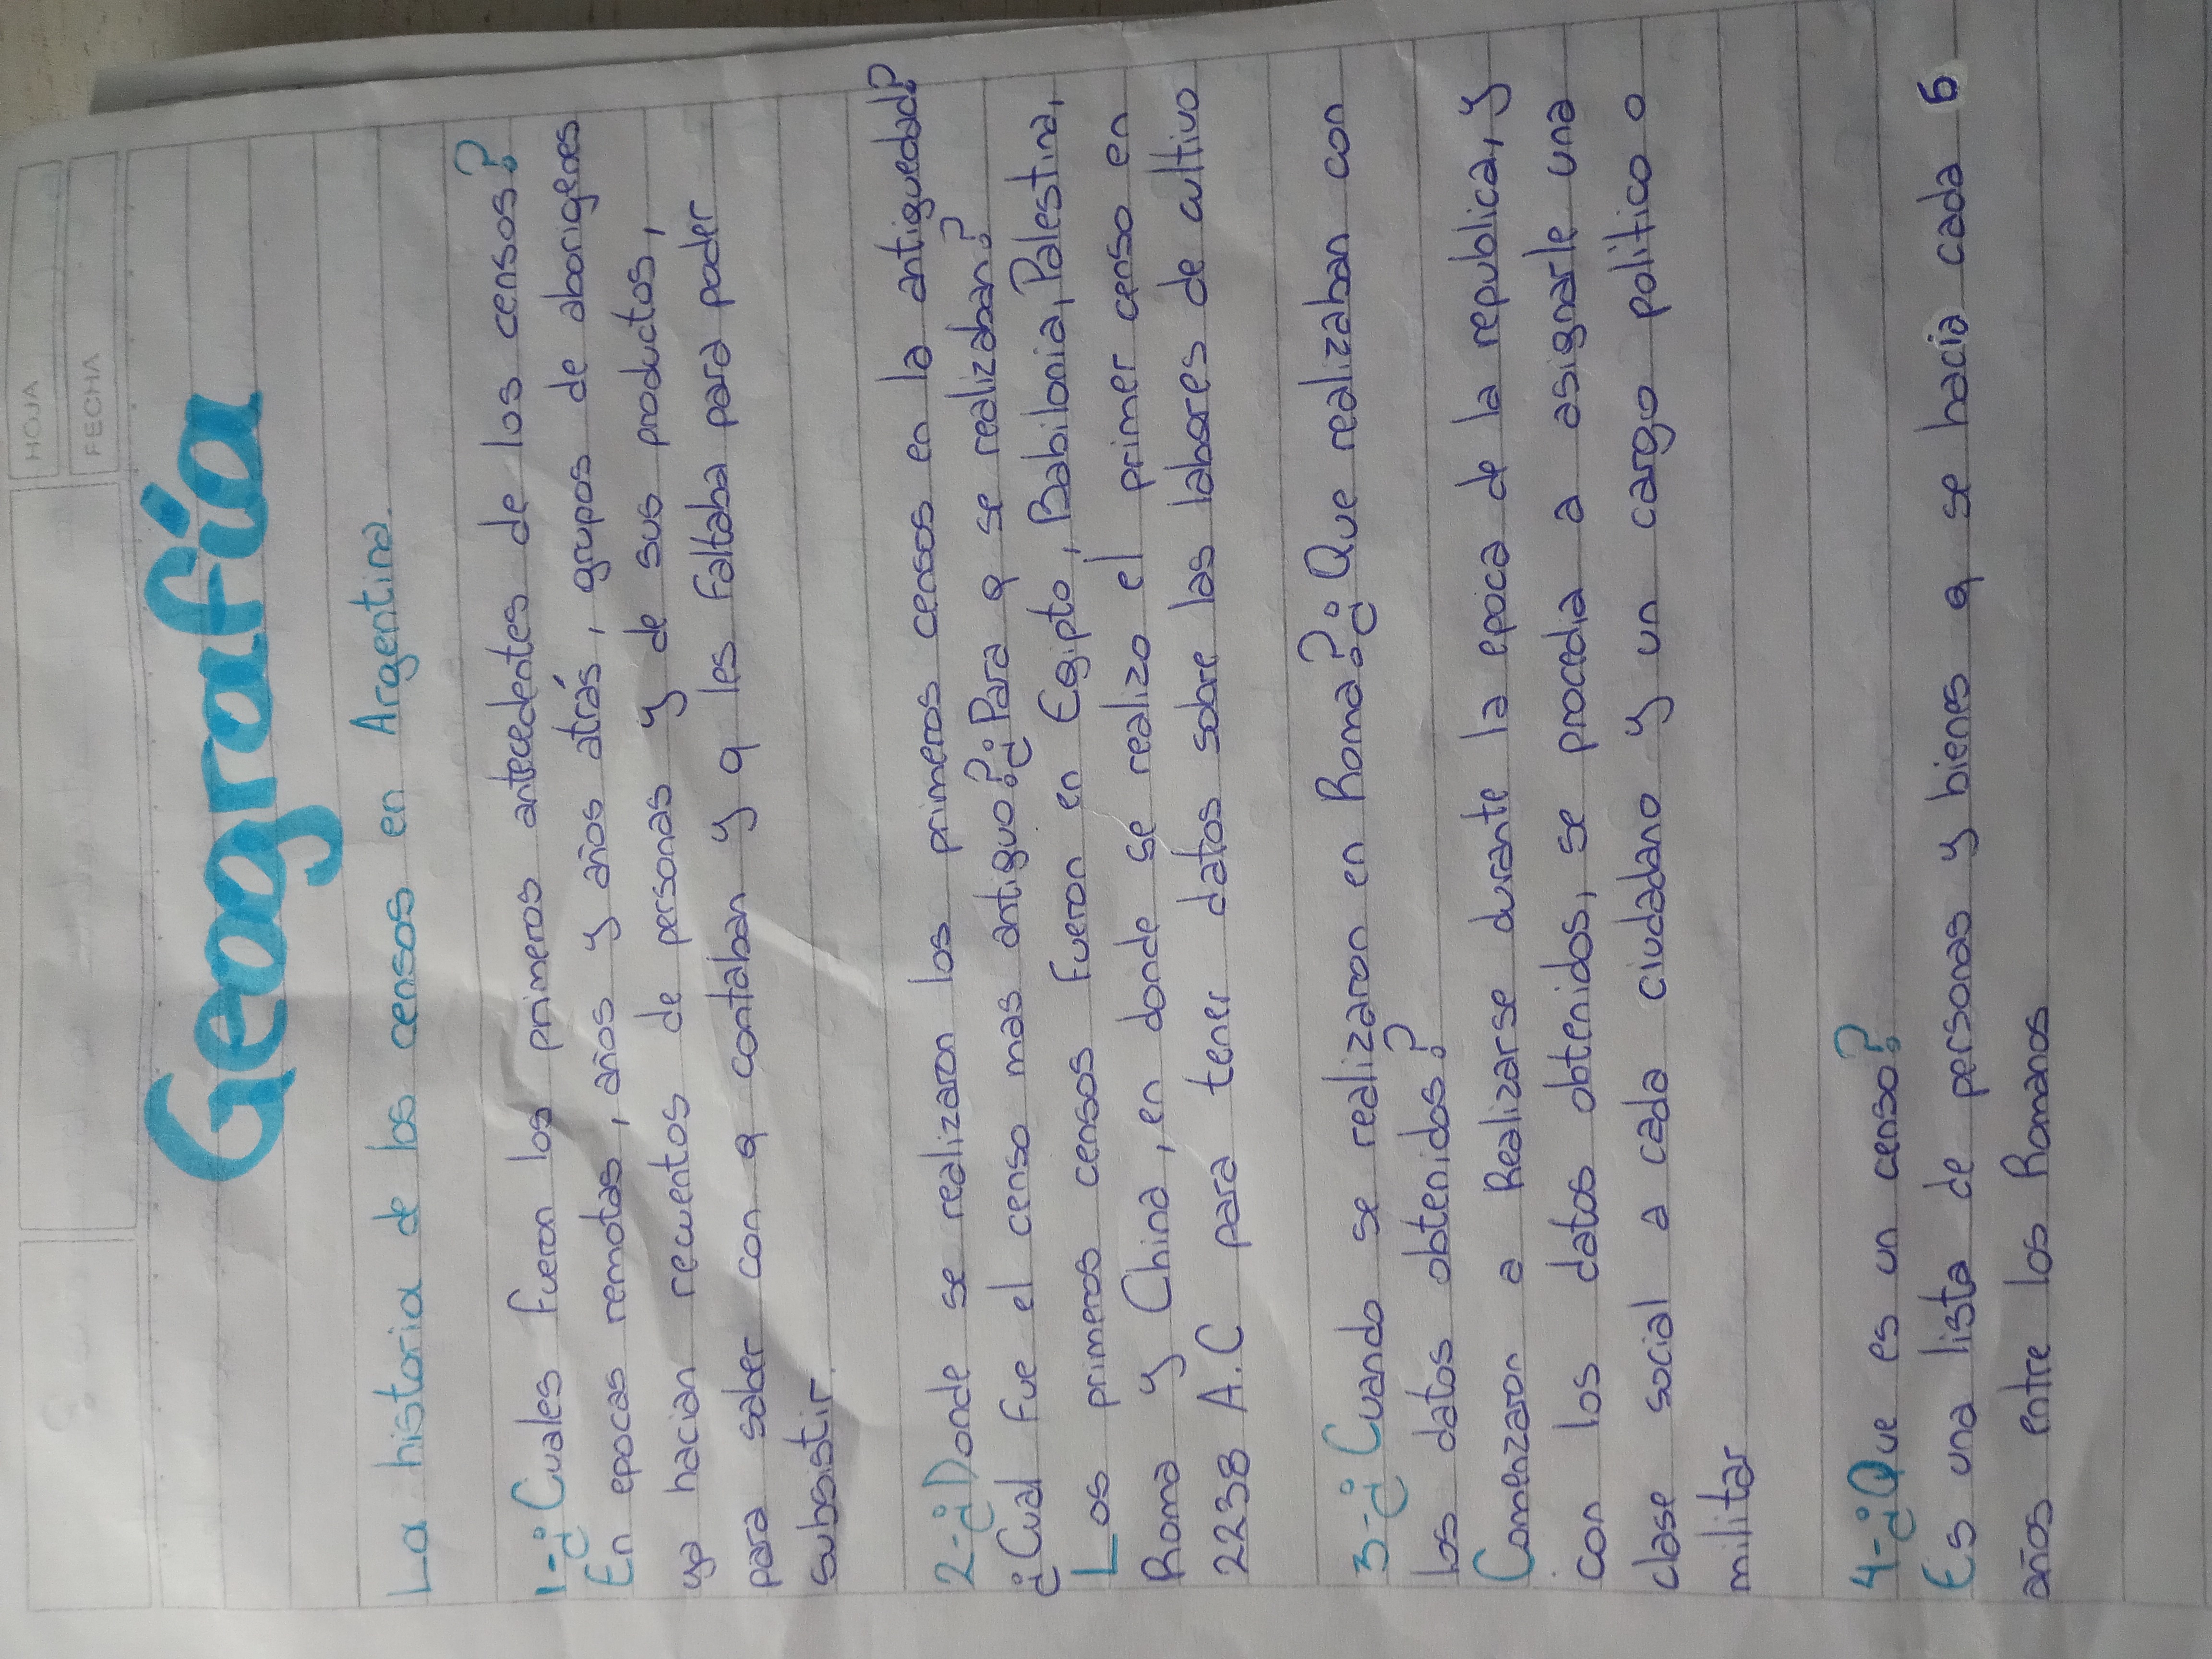 HOJA
FECHA
Geografía
La historia de los censos en Argentina.
1-¿Cuales fueron los primeros antecedentes de los censos?
En epocas remotas, años y años atrás, grupos de aborigenes
ya hacian recuentos de personas y de sus productos,
para saber con q contaban y q les faltaba para poder
subsistir.
2-¿Donde se realizaron los primeros censos en la antiguedad?
¿Cual fue el censo mas antiguo?¿Para q se realizaban?
Los primeros censos fueron en Egipto, Babilonia, Palestina,
Roma y China, en donde se realizo el primer censo en
2238 A.C para tener datos sobre las labores de cultivo
3-¿Cuando se realizaron en Roma?¿Que realizaban con
los datos obtenidos?
Comenzaron a Realizarse durante la epoca de la republica, y
con los datos obtenidos, se procedia a asignarle una
clase social a cada ciudadano y un cargo politico o
militar
4-¿Que es un censo?
Es una lista de personas y bienes q se hacia cada 5
años entre los Romanos